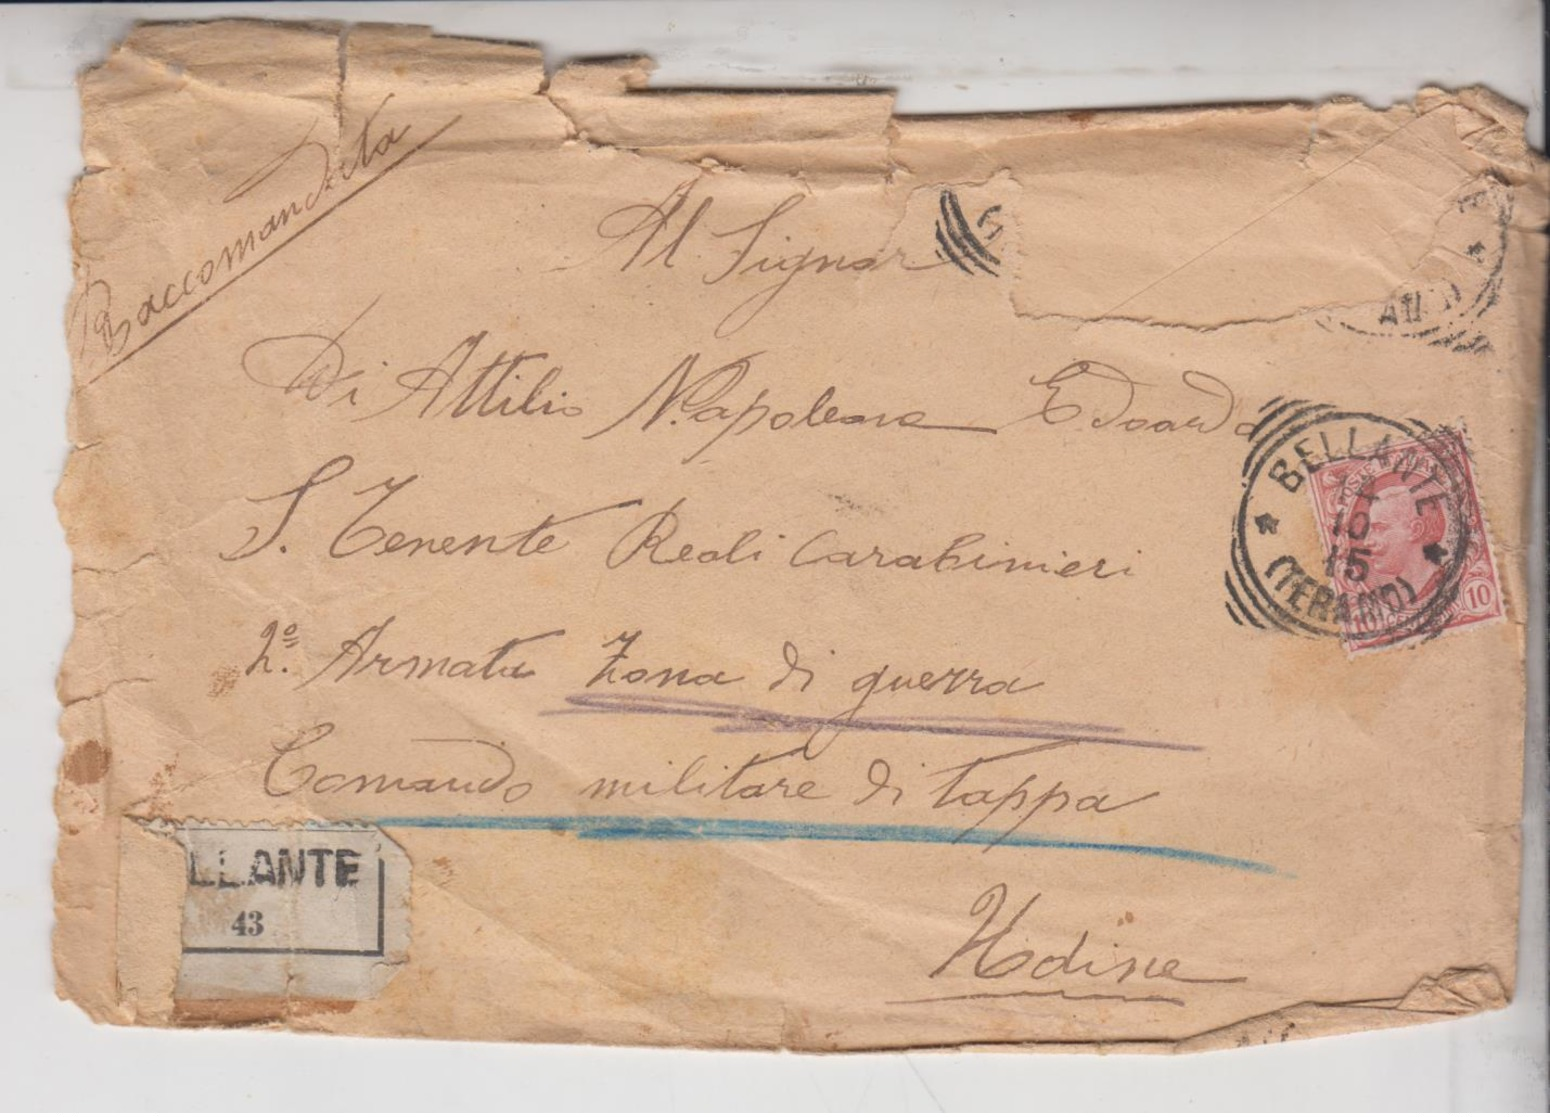 Raccomandata
Al Signor
Di Attilio Napoleone Edoardo
S. Tenente Reali Carabinieri
2º Armata Zona di guerra
Comando militare di tappa
Udine
BELLANTE
15
(TERAMO)
10
10
LLANTE
43